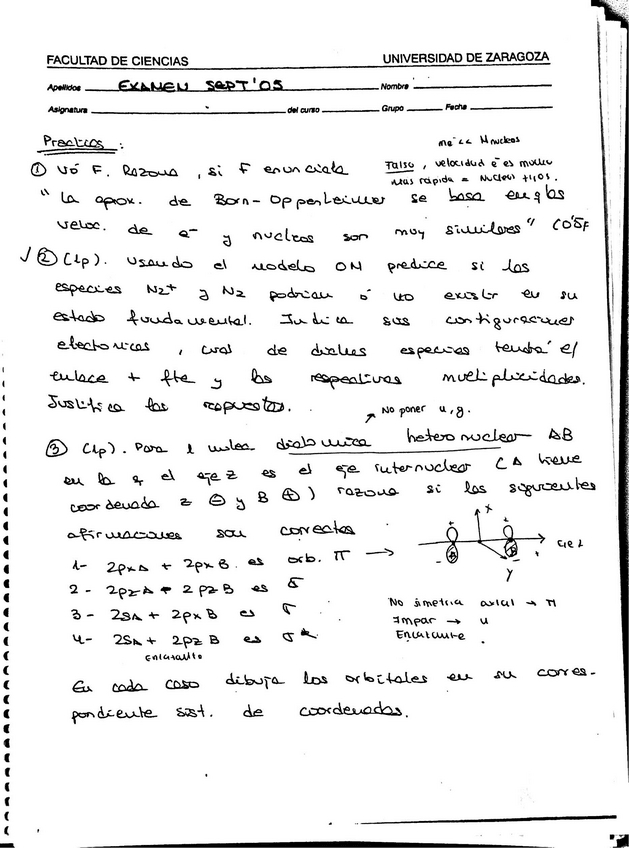 FACULTAD DE CIENCIAS UNIVERSIDAD DE ZARAGOZA
Apellidos EXAMEN SEPT'05 Nombre
Asignatura del curso Grupo Fecha
Practicas:
me << Mnucleos
① V ó F. Razona, si F enunciala
Falso, velocidad e⁻ es mucho
mas rapida = Nucleos fijos.
"La aprox. de Born-Oppenheimer se basa en q las
veloc. de e⁻ y nucleos son muy similares" (0'5F
√ ② (1p). Usando el modelo OM predice si las
especies N2+ y N2 podrian ó no existir en su
estado fundamental. Indica sus configuraciones
electronicas, cual de dichas especies tendrá el
enlace + fte y las respectivas multiplicidades.
Justifica las respuestas.
No poner u, g.
③ (1p). Para 1 molec diatomica heteronuclear AB
en la q el eje z es el eje internuclear (A tiene
coordenada z ⊖ y B ⊕) razona si las siguientes
afirmaciones son correctas
1- 2pxA + 2pxB es orb. π →
2- 2pzA + 2pzB es σ
3- 2sA + 2pxB es σ
4- 2sA + 2pzB es σ*
Enlazante
x
+ +
A B eje z
- - +
y
No simetria axial → π
Impar → u
Enlazante.
En cada caso dibuja los orbitales en su corres-
pondiente sist. de coordenadas.